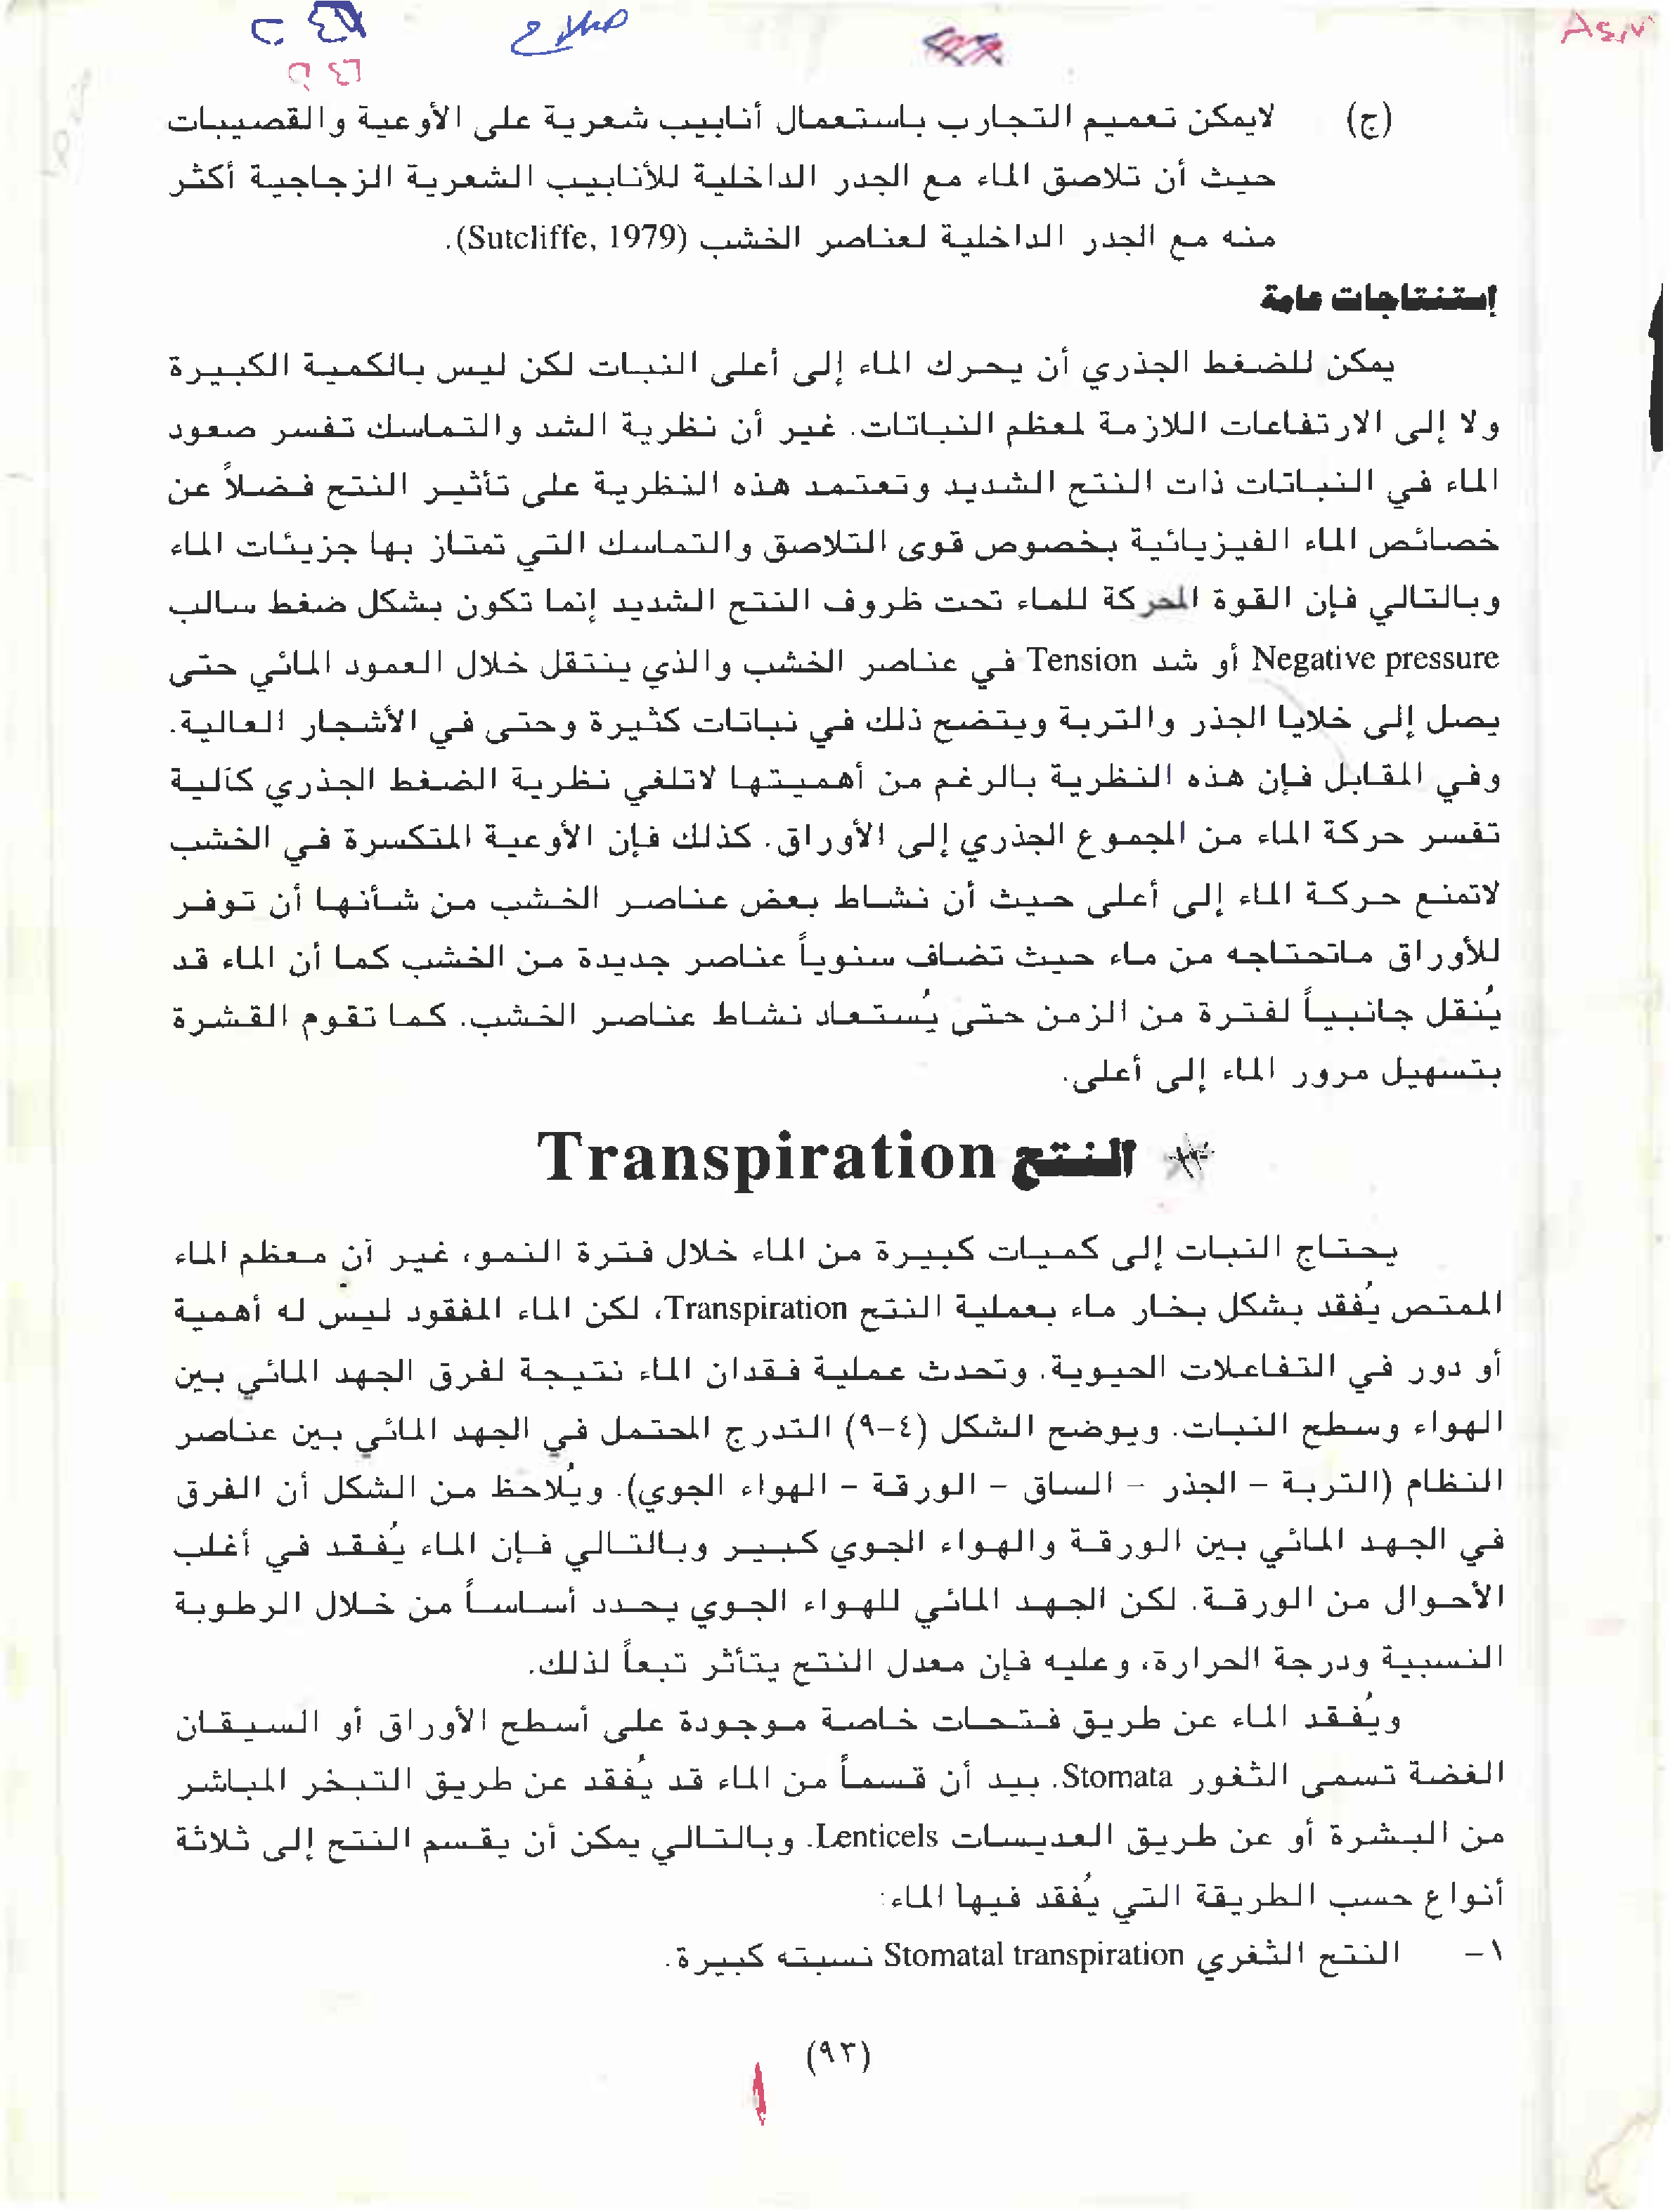 صلاح
(ج) لايمكن تعميم التجارب باستعمال أنابيب شعرية على الأوعية والقصيبات
حيث أن تلاصق الماء مع الجدر الداخلية للأنابيب الشعرية الزجاجية أكثر
منه مع الجدر الداخلية لعناصر الخشب (Sutcliffe, 1979).
إستنتاجات عامة
يمكن للضغط الجذري أن يحرك الماء إلى أعلى النبات لكن ليس بالكمية الكبيرة
ولا إلى الارتفاعات اللازمة لمعظم النباتات. غير أن نظرية الشد والتماسك تفسر صعود
الماء في النباتات ذات النتح الشديد وتعتمد هذه النظرية على تأثير النتح فضلاً عن
خصائص الماء الفيزيائية بخصوص قوى التلاصق والتماسك التي تمتاز بها جزيئات الماء
وبالتالي فإن القوة المحركة للماء تحت ظروف النتح الشديد إنما تكون بشكل ضغط سالب
Negative pressure أو شد Tension في عناصر الخشب والذي ينتقل خلال العمود المائي حتى
يصل إلى خلايا الجذر والتربة ويتضح ذلك في نباتات كثيرة وحتى في الأشجار العالية.
وفي المقابل فإن هذه النظرية بالرغم من أهميتها لاتلغي نظرية الضغط الجذري كآلية
تفسر حركة الماء من المجموع الجذري إلى الأوراق. كذلك فإن الأوعية المتكسرة في الخشب
لاتمنع حركة الماء إلى أعلى حيث أن نشاط بعض عناصر الخشب من شأنها أن توفر
للأوراق ماتحتاجه من ماء حيث تضاف سنوياً عناصر جديدة من الخشب كما أن الماء قد
يُنقل جانبياً لفترة من الزمن حتى يُستعاد نشاط عناصر الخشب. كما تقوم القشرة
بتسهيل مرور الماء إلى أعلى.
النتح Transpiration
يحتاج النبات إلى كميات كبيرة من الماء خلال فترة النمو، غير أن معظم الماء
الممتص يُفقد بشكل بخار ماء بعملية النتح Transpiration، لكن الماء المفقود ليس له أهمية
أو دور في التفاعلات الحيوية. وتحدث عملية فقدان الماء نتيجة لفرق الجهد المائي بين
الهواء وسطح النبات. ويوضح الشكل (٤-٩) التدرج المحتمل في الجهد المائي بين عناصر
النظام (التربة - الجذر - الساق - الورقة - الهواء الجوي). ويُلاحظ من الشكل أن الفرق
في الجهد المائي بين الورقة والهواء الجوي كبير وبالتالي فإن الماء يُفقد في أغلب
الأحوال من الورقة. لكن الجهد المائي للهواء الجوي يحدد أساساً من خلال الرطوبة
النسبية ودرجة الحرارة، وعليه فإن معدل النتح يتأثر تبعاً لذلك.
ويُفقد الماء عن طريق فتحات خاصة موجودة على أسطح الأوراق أو السيقان
الغضة تسمى الثغور Stomata. بيد أن قسماً من الماء قد يُفقد عن طريق التبخر المباشر
من البشرة أو عن طريق العديسات Lenticels. وبالتالي يمكن أن يقسم النتح إلى ثلاثة
أنواع حسب الطريقة التي يُفقد فيها الماء:
١- النتح الثغري Stomatal transpiration نسبته كبيرة.
(٩٣)
١